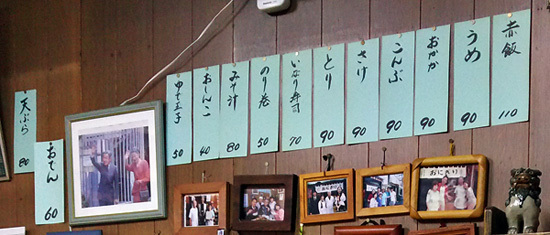 赤飯 110
うめ 90
おかか 90
こんぶ 90
さけ 90
とり 90
いなり寿司 70
のり巻 50
みそ汁 80
おしんこ 40
ゆで玉子 50
天ぷら 80
おでん 60
おにぎり